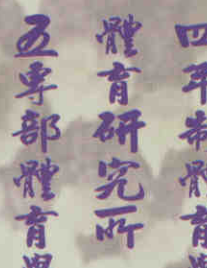 四年制體
體育研究所
五專部體育學